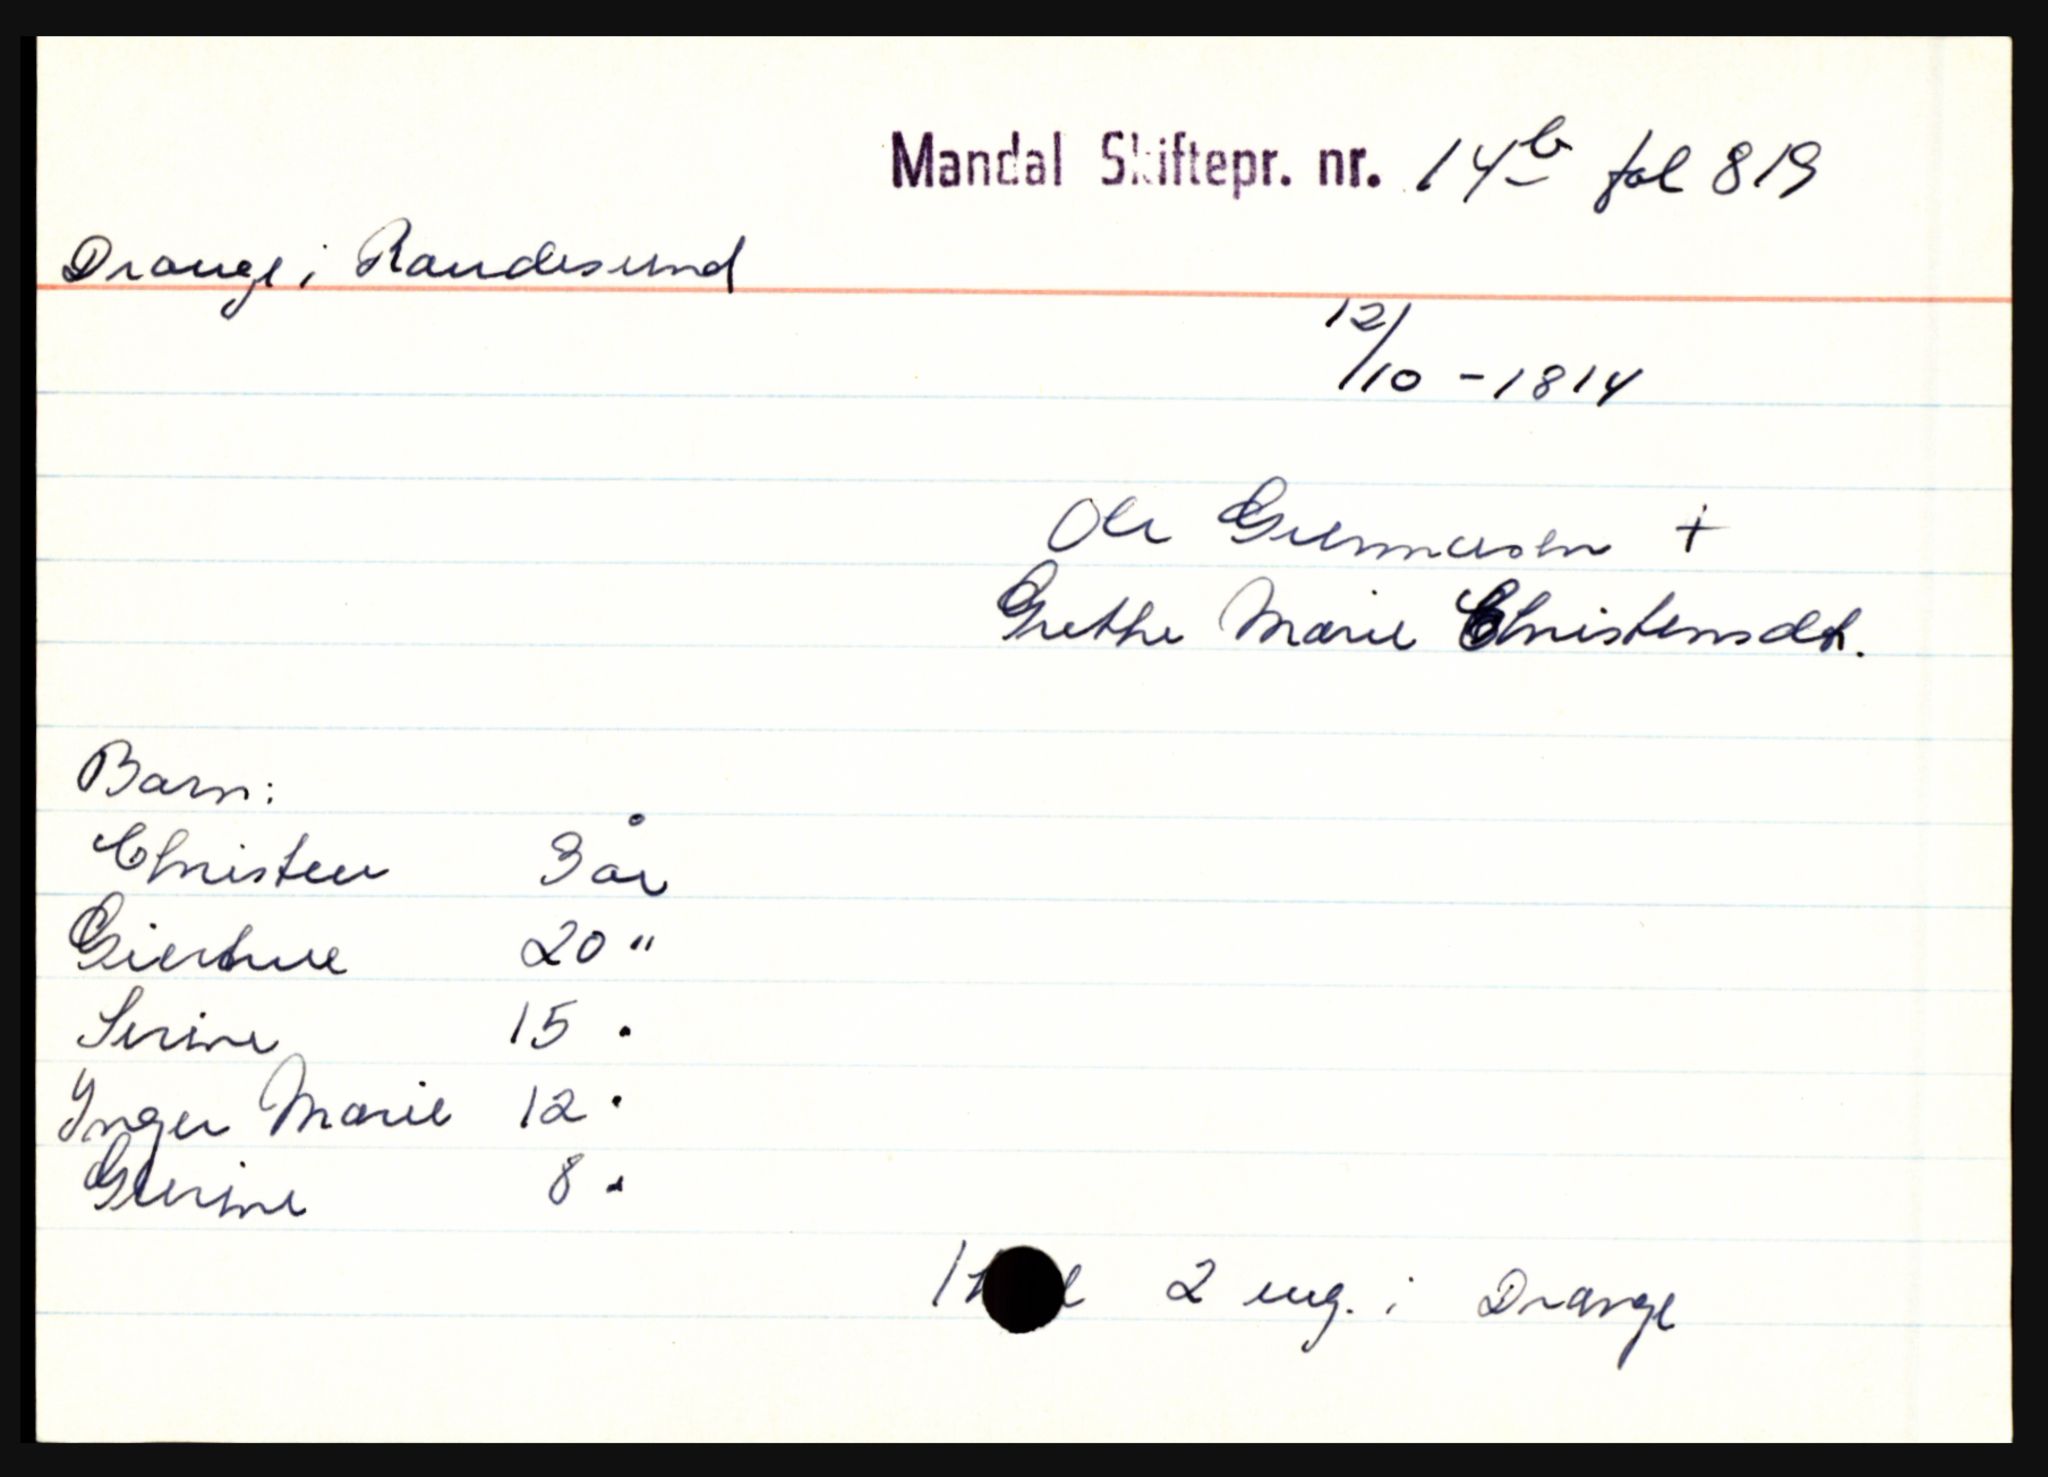 Mandal Skiftepr. nr. 14b fol 819
Drange i Randesund
12/10 - 1814
Ole Gunnusen +
Grethe Marie Christensdt.
Barn:
Christen 3 år
Giertrue 20 "
Serine 15 "
Inger Marie 12 "
Gurine 8 "
2 eng. i Drange